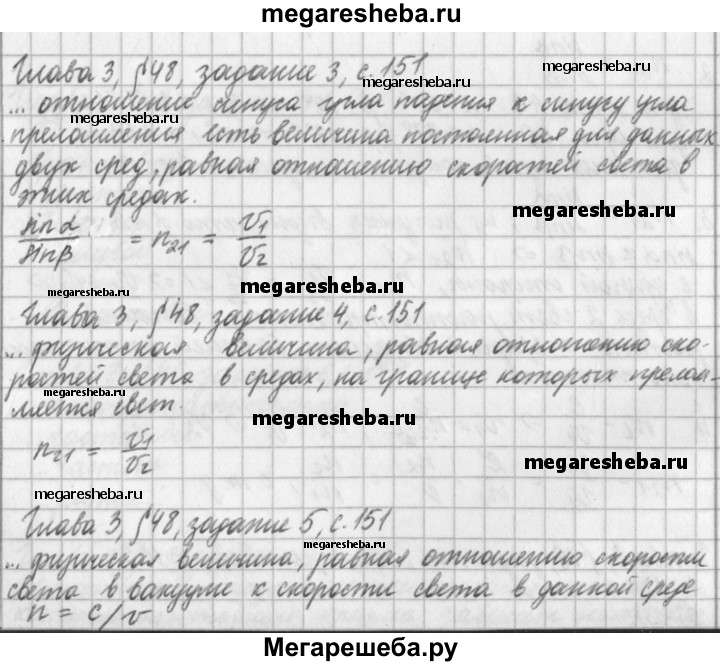 megaresheba.ru
Глава 3, §48, задание 3, с. 151
megaresheba.ru
... отношение синуса угла падения к синусу угла
megaresheba.ru
megaresheba.ru
преломления есть величина постоянная для данных
двух сред, равная отношению скоростей света в
этих средах.
megaresheba.ru
sin α / sin β = n₂₁ = v₁ / v₂
megaresheba.ru
megaresheba.ru
megaresheba.ru
Глава 3, §48, задание 4, с. 151
... физическая величина, равная отношению ско-
ростей света в средах, на границе которых прелом-
ляется свет.
megaresheba.ru
n₂₁ = v₁ / v₂
megaresheba.ru
megaresheba.ru
Глава 3, §48, задание 5, с. 151
megaresheba.ru
... физическая величина, равная отношению скорости
света в вакууме к скорости света в данной среде
n = c/v
Мегарешеба.ру